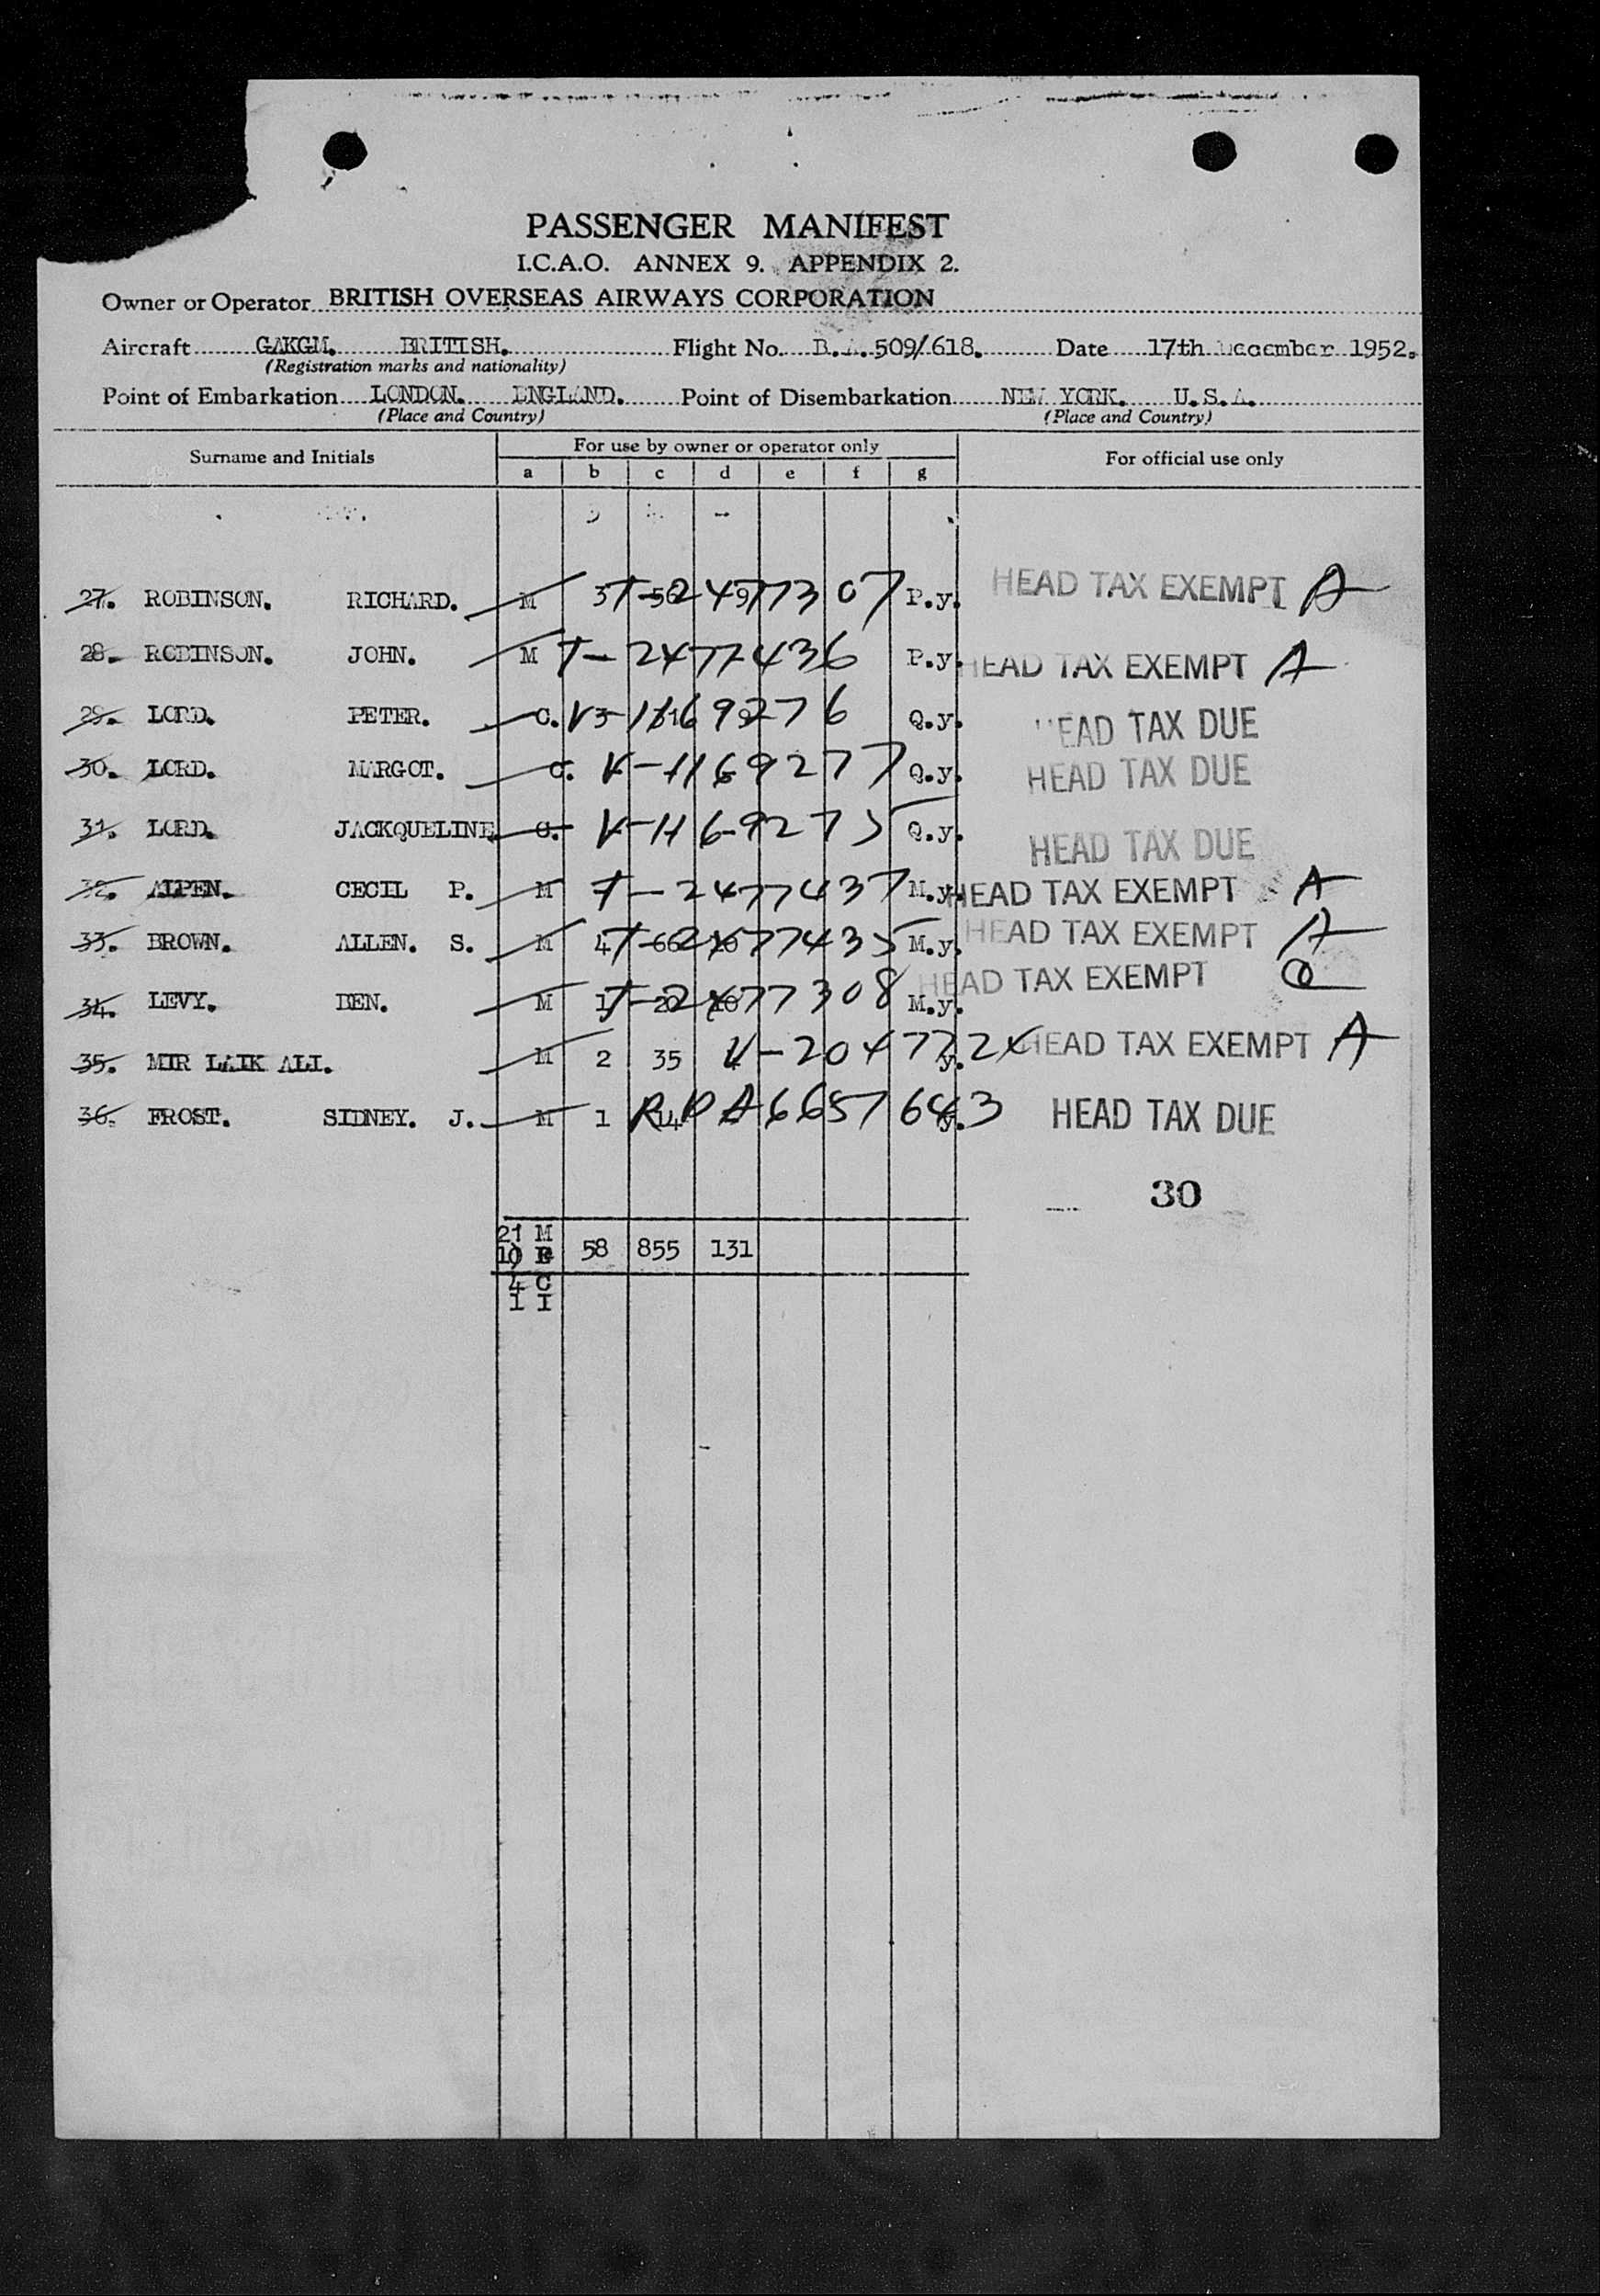 PASSENGER MANIFEST
I.C.A.O. ANNEX 9. APPENDIX 2.
Owner or Operator BRITISH OVERSEAS AIRWAYS CORPORATION
Aircraft GAKGM. BRITISH. Flight No. B.A.509/618. Date 17th December 1952.
(Registration marks and nationality)
Point of Embarkation LONDON. ENGLAND. Point of Disembarkation NEW YORK. U.S.A.
(Place and Country) (Place and Country)
Surname and Initials For use by owner or operator only For official use only
a b c d e f g
27. ROBINSON. RICHARD. M 3 T-2477307 P.y. HEAD TAX EXEMPT A
28. ROBINSON. JOHN. M T-2477436 P.y. HEAD TAX EXEMPT A
29. LORD. PETER. C. V-1169276 Q.y. HEAD TAX DUE
30. LORD. MARGOT. C. V-1169277 Q.y. HEAD TAX DUE
31. LORD. JACKQUELINE. C. V-1169275 Q.y. HEAD TAX DUE
32. ALPEN. CECIL P. M T-2477437 M.y. HEAD TAX EXEMPT A
33. BROWN. ALLEN. S. M 4 T-2477435 66 10 M.y. HEAD TAX EXEMPT A
34. LEVY. BEN. M 1 T-2477308 20 10 M.y. HEAD TAX EXEMPT
35. MIR LAIK ALI. M 2 35 V-2047724 y. HEAD TAX EXEMPT A
36. FROST. SIDNEY. J. M 1 14 y. HEAD TAX DUE
30
21 M
10 F 58 855 131
4 C
1 I